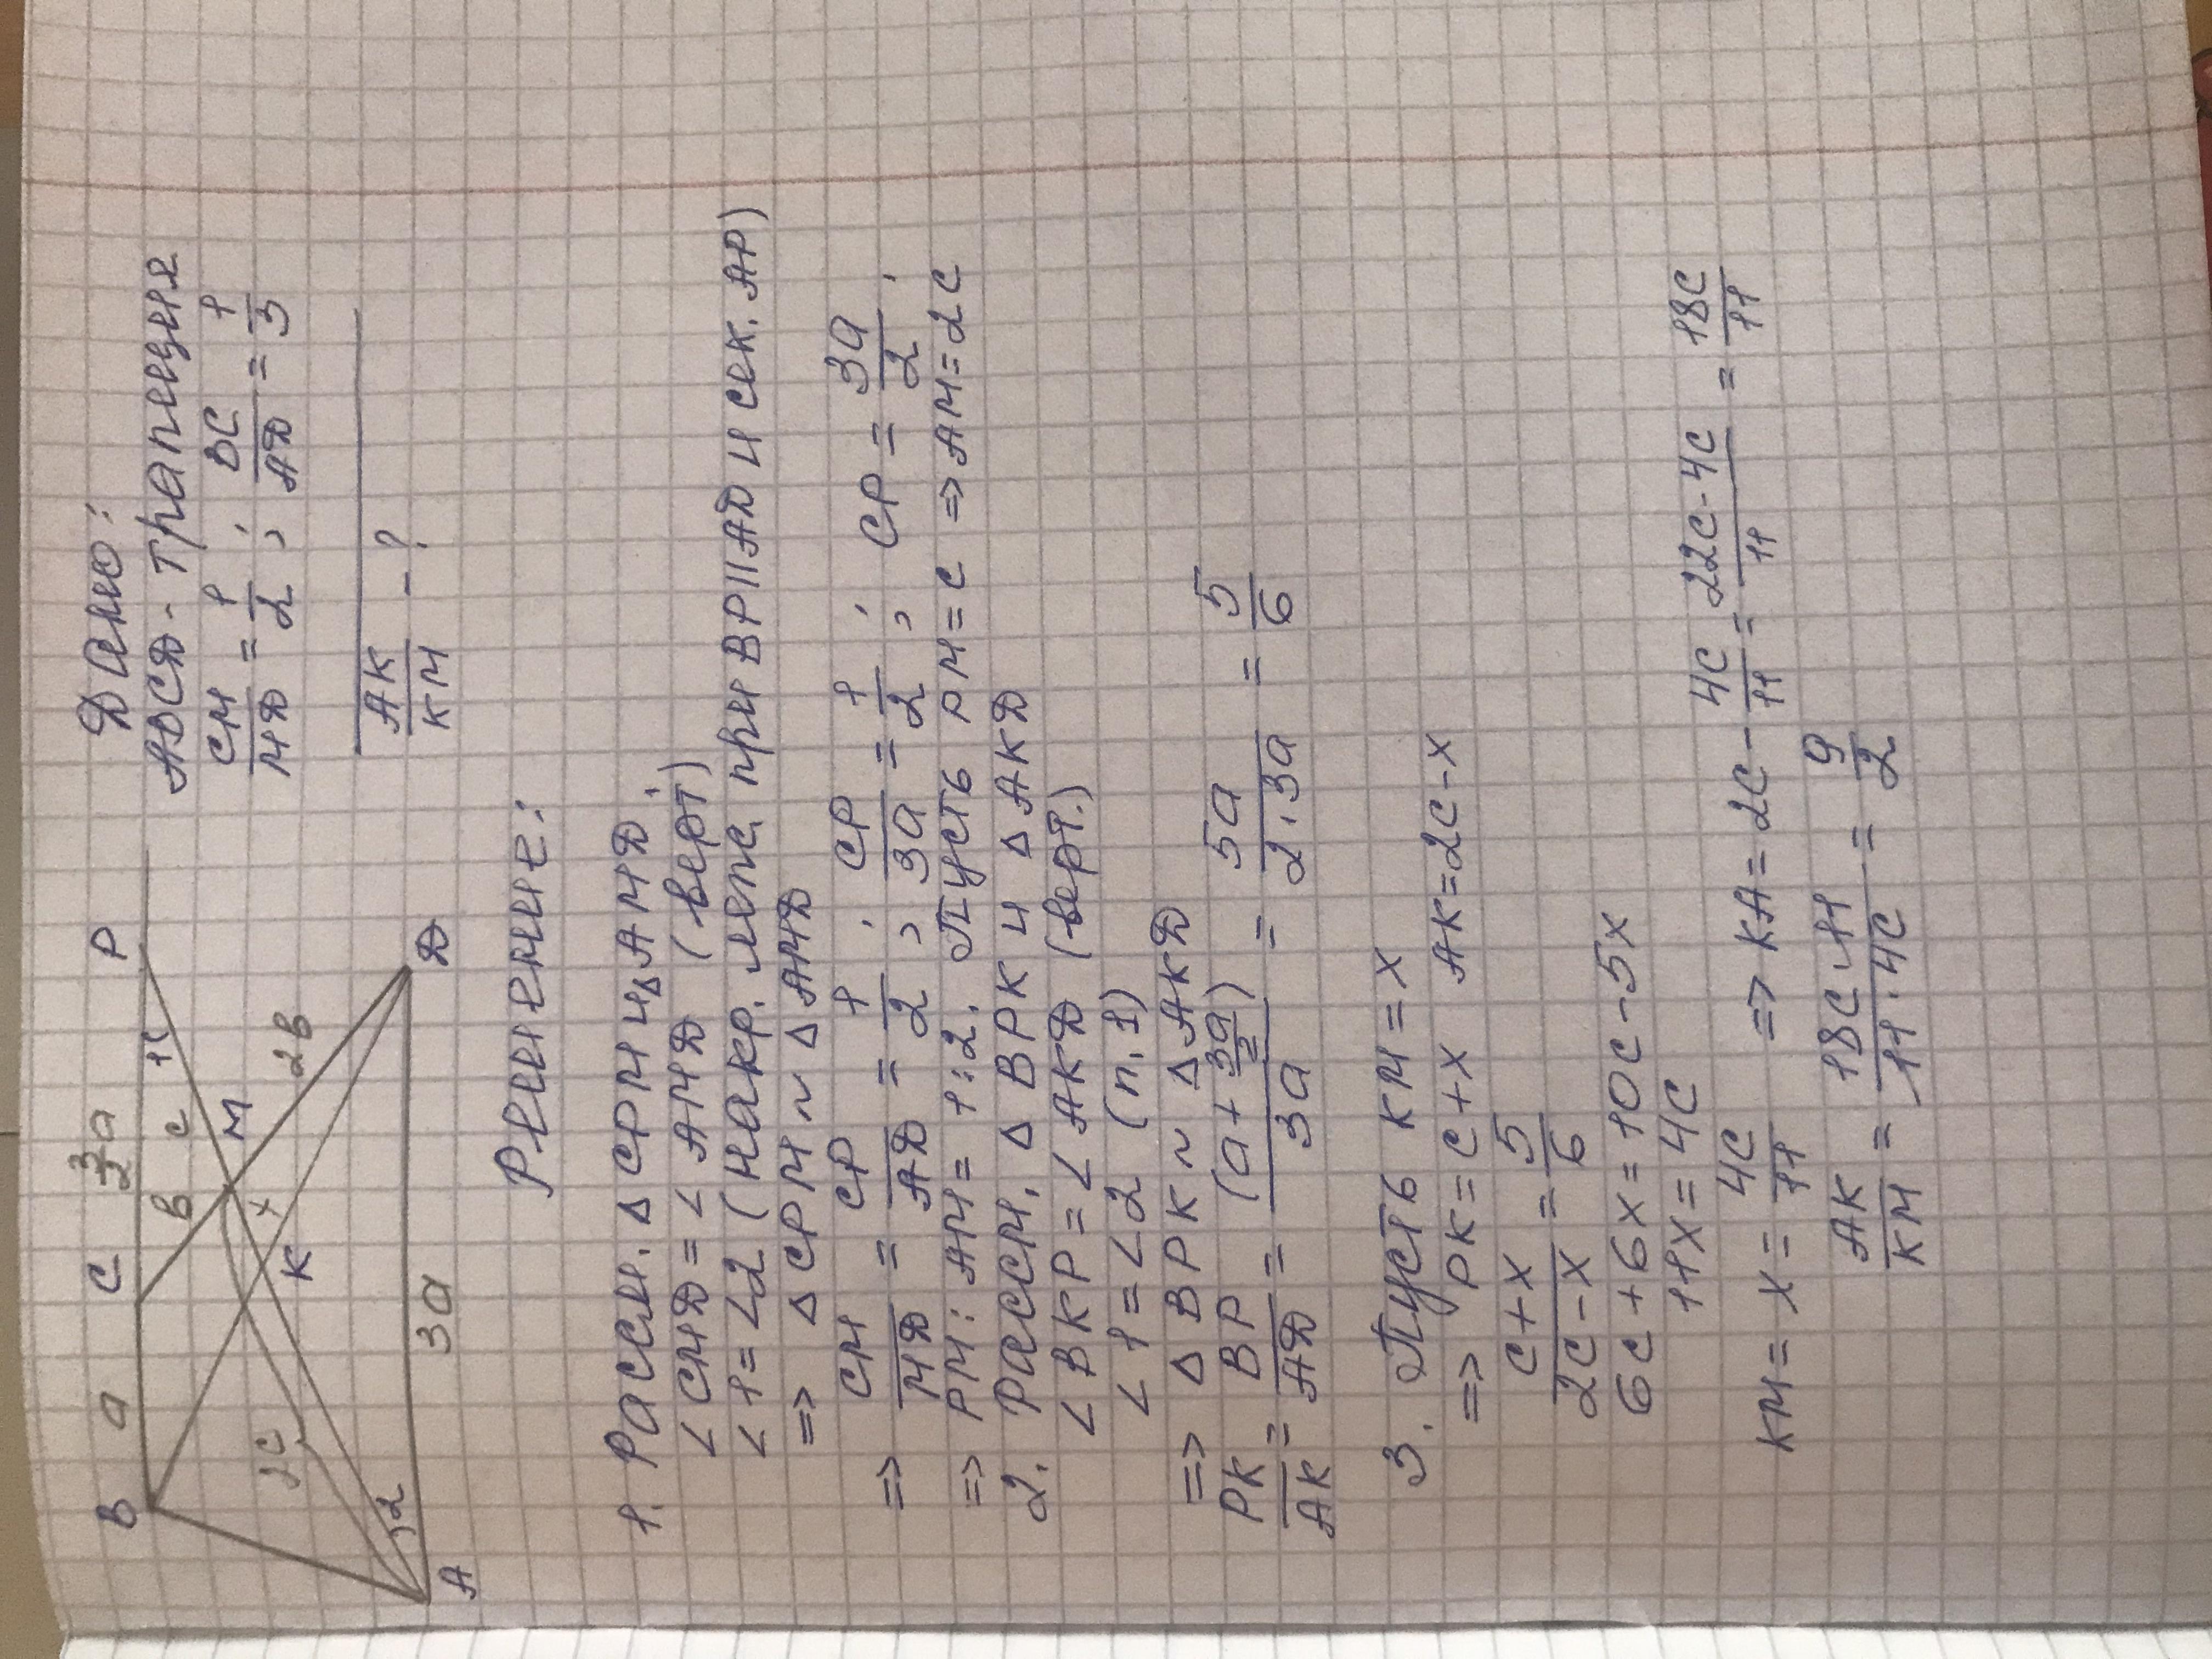 B a C 3/2 a P
b c 1
2c M 2b
x
K
2
A 3a Д
Дано:
ABCД - трапеция
CM/MД = 1/2; BC/AД = 1/3
AK/KM - ?
Решение:
1. Рассм. Δ CPM и Δ AMД.
∠CMД = ∠ AMД (верт)
∠1 = ∠2 (накр. леж. при BP||AД и сек. AP)
=> Δ CPM ~ Δ AMД
=> CM/MД = CP/AД = 1/2; CP/3a = 1/2; CP = 3a/2;
=> PM : AM = 1:2. Пусть PM = c => AM = 2c
2. Рассм. Δ BPK и Δ AKД
∠BKP = ∠ AKД (верт.)
∠1 = ∠2 (п.1)
=> Δ BPK ~ Δ AKД
PK/AK = BP/AД = (a + 3a/2)/3a = 5a/2·3a = 5/6
3. Пусть KM = x
=> PK = c + x AK = 2c - x
c + x/2c - x = 5/6
6c + 6x = 10c - 5x
11x = 4c
KM = x = 4c/11 => KA = 2c - 4c/11 = 22c - 4c/11 = 18c/11
AK/KM = 18c·11/11·4c = 9/2